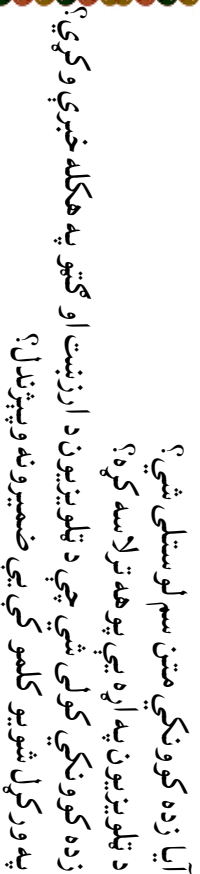 آیا زده کوونکي متن سم لوستلی شي؟
د ټلویزیون په اړه یې پوهه ترلاسه کړه؟
زده کوونکي کولی شي چې د ټلویزیون د ارزښت او ګټو په هکله خبرې وکړي؟
په ورکړل شویو کلمو کې یې ضمیرونه وپېژندل؟